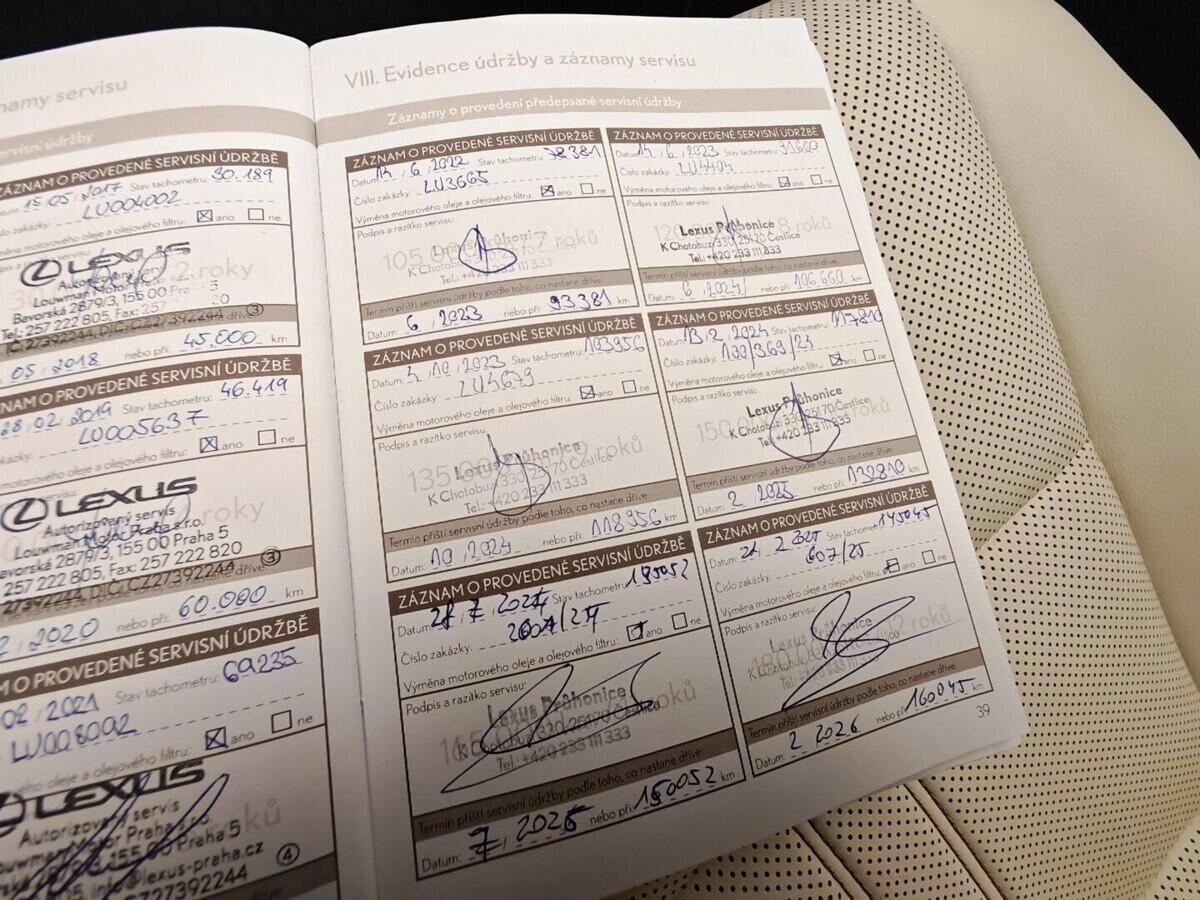 namy servisu
ervisní údržby
ZÁZNAM O PROVEDENÉ SERVISNÍ ÚDRŽBĚ
15 05 2017 Stav tachometru: 30.189
zakázky: LU004002
Výměna motorového oleje a olejového filtru: ano ne
LEXUS
2 roky
Autorizovaný
Louwman
Bavorská 2879/3, 155 00 Praha 5
Tel.: 257 222 805, Fax: 257
27392244, DIČ: CZ27392244 dříve: ③
05 2018 nebo při: 45.000 km
NAM O PROVEDENÉ SERVISNÍ ÚDRŽBĚ
28.02.2019 Stav tachometru: 46.419
kázky: LU005637
motorového oleje a olejového filtru: ano ne
LEXUS
roky
Autorizovaný servis
Louwman Motor Praha s.r.o.
avorská 2879/3, 155 00 Praha 5
257 222 805, Fax: 257 222 820
27392244, DIČ: CZ27392244 nastane dříve: ③
2020 nebo při: 60.000 km
M O PROVEDENÉ SERVISNÍ ÚDRŽBĚ
02.2021 Stav tachometru: 69235
LU008092
ého oleje a olejového filtru: ano ne
LEXUS
Autorizovaný servis
ouwman Motor Praha s.r.o.
155 00 Praha 5
info@lexus-praha.cz
CZ27392244 ④
dříve:
VIII. Evidence údržby a záznamy servisu
Záznamy o provedení předepsané servisní údržby
ZÁZNAM O PROVEDENÉ SERVISNÍ ÚDRŽBĚ
Datum: 14.6.2022 Stav tachometru: 78381
Číslo zakázky: LU3665
Výměna motorového oleje a olejového filtru: ano ne
Podpis a razítko servisu:
105 7 roků
K Chotobuzi 330 Čestlice
Tel.: +420 233 111 333
Termín příští servisní údržby podle toho, co nastane dříve:
Datum: 6.2023 nebo při: 93381 km
ZÁZNAM O PROVEDENÉ SERVISNÍ ÚDRŽBĚ
Datum: 14.6.2023 Stav tachometru: 91660
Číslo zakázky: LU4404
Výměna motorového oleje a olejového filtru: ano ne
Podpis a razítko servisu:
Lexus Průhonice
8 roků
K Chotobuzi 330 25170 Čestlice
Tel.: +420 233 111 333
Termín příští servisní údržby podle toho, co nastane dříve:
Datum: 6.2024 nebo při: 106660 km
ZÁZNAM O PROVEDENÉ SERVISNÍ ÚDRŽBĚ
Datum: 4.10.2023 Stav tachometru: 103956
Číslo zakázky: LU4699
Výměna motorového oleje a olejového filtru: ano ne
Podpis a razítko servisu:
Lexus Průhonice
135 roků
K Chotobuzi 330 25170 Čestlice
Tel.: +420 233 111 333
Termín příští servisní údržby podle toho, co nastane dříve:
Datum: 10.2024 nebo při: 118956 km
ZÁZNAM O PROVEDENÉ SERVISNÍ ÚDRŽBĚ
Datum: 13.2.2024 Stav tachometru: 117810
Číslo zakázky: 100/369/24
Výměna motorového oleje a olejového filtru: ano ne
Podpis a razítko servisu:
Lexus Průhonice
150 roků
K Chotobuzi 330 25170 Čestlice
Tel.: +420 233 111 333
Termín příští servisní údržby podle toho, co nastane dříve:
Datum: 2 2025 nebo při: 132810 km
ZÁZNAM O PROVEDENÉ SERVISNÍ ÚDRŽBĚ
Datum: 7.2024 Stav tachometru:
Číslo zakázky:
Výměna motorového oleje a olejového filtru: ano ne
Podpis a razítko servisu:
Lexus Průhonice
roků
K Chotobuzi 330 25170 Čestlice
Tel.: +420 233 111 333
Termín příští servisní údržby podle toho, co nastane dříve:
Datum: 7.2025 nebo při: 150052 km
ZÁZNAM O PROVEDENÉ SERVISNÍ ÚDRŽBĚ
Datum: 2 2025 Stav tachometru: 145045
Číslo zakázky: 607/25
Výměna motorového oleje a olejového filtru: ano ne
Podpis a razítko servisu:
Lexus Průhonice
12 roků
K Chotobuzi 330 25170 Čestlice
Termín příští servisní údržby podle toho, co nastane dříve:
Datum: 2 2026 nebo při: 160045 km
39